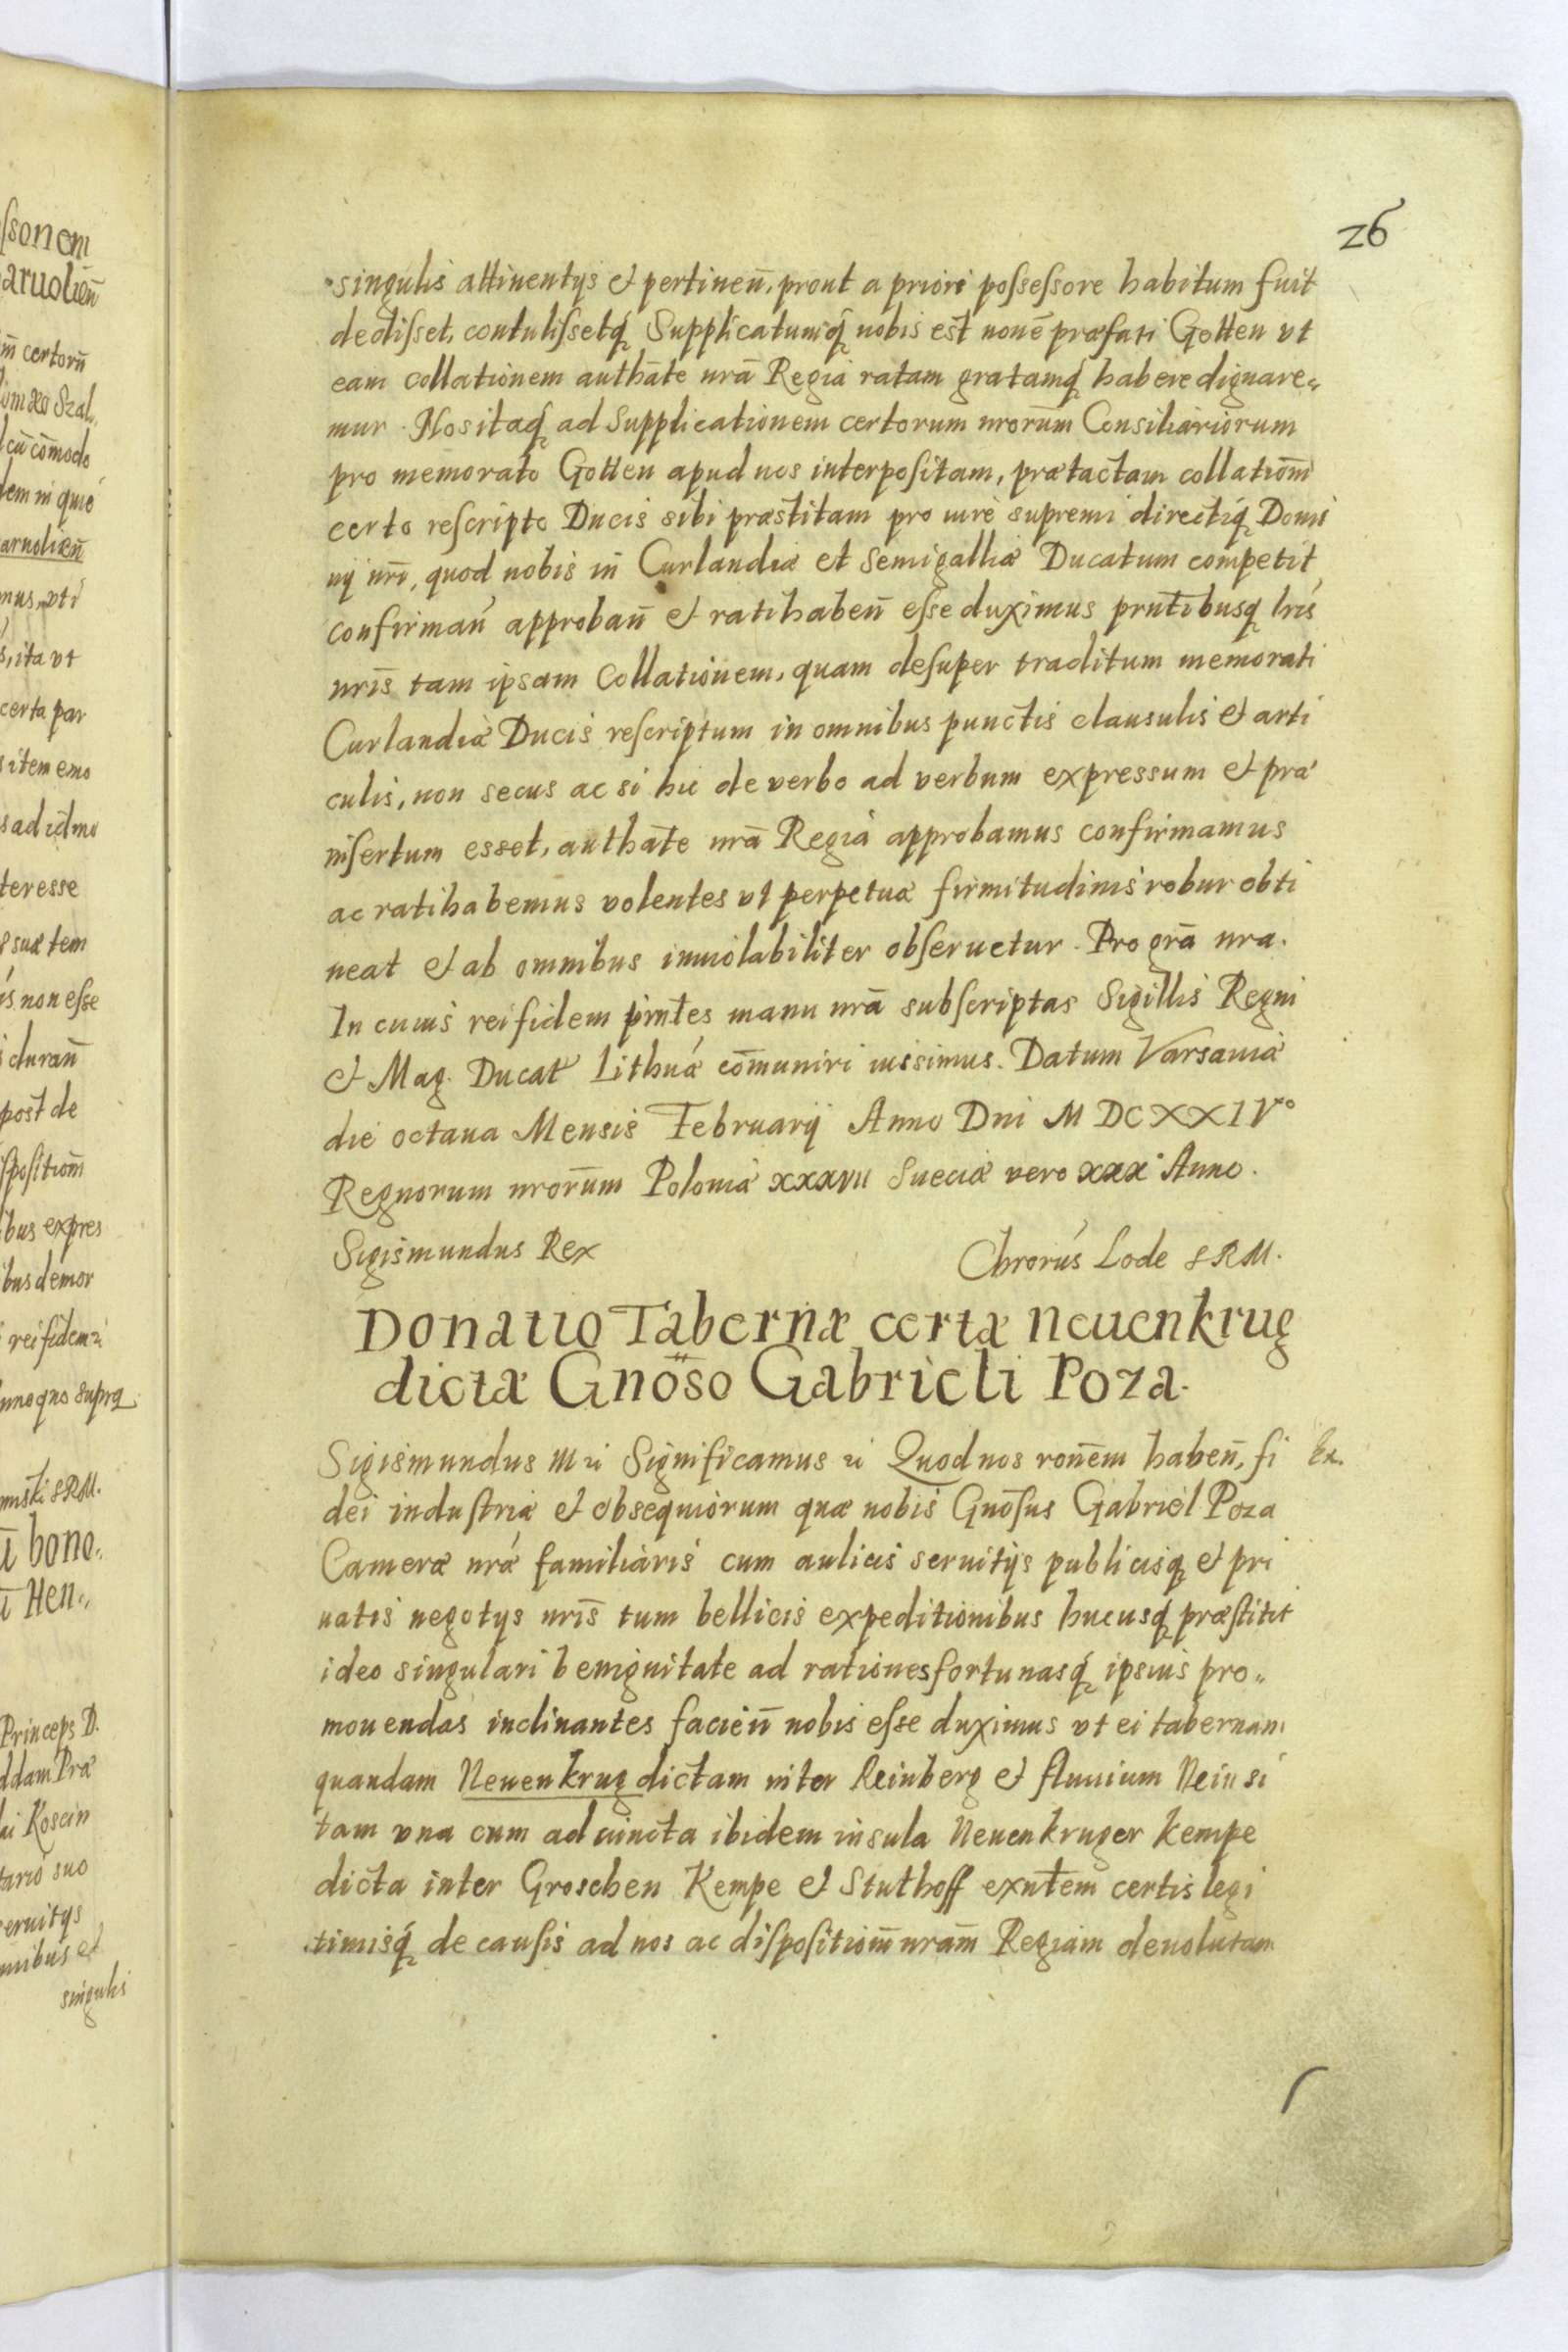 26
singulis attinentys et pertineñ, prout a priori possessore habitum fuit
dedisset, contulissetq́ Supplicatumq́ nobis est noñe præfati Gotten vt
eam collationem authāte nrā Regiâ ratam gratamq́ habere dignare„
mur. Nos itaq́ ad Supplicationem certorum nrorūm Consiliariorum
pro memorato Gotten apud nos interpositam, prætactam collatioñm
certo rescripto Ducis sibi præstitam pro iure supremi directiq́ Domi
nÿ nrī, quod nobis in Curlandiæ et Semigalliæ Ducatum competit
confirmañ approbañ et ratihabeñ esse duximus prntībusq́ lrīs
nrīs tam ipsam Collationem, quam desuper traditum memorati
Curlandiæ Ducis rescriptum in omnibus punctis clausulis et arti
culis, non secus ac si hic de verbo ad verbum expressum et præ
insertum esset, authāte nrā Regiâ approbamus confirmamus
ac ratihabemus volentes vt perpetuæ firmitudinis robur obti
neat et ab omnibus inuiolabiliter obseruetur. Pro grā nra.
In cuius rei fidem pñtes manu nrā subscriptas Sigillis Regni
et Mag. Ducat Lithuá cōmuniri iussimus. Datum Varsauiæ
die octaua Mensis Februarij Anno Dni M DC XXIVº
Regnorum nrorūm Poloniæ xxxvii Sueciæ vero xxx° Anno.
Sigismundus Rex Chrorús Lode SRM.
Donatio Tabernæ certæ Neuenkrug
dictæ Gnōso Gabrieli Poza.
Sigismundus III ꝛc Significamus ꝛc Quod nos roñem habeñ, fi
Ex.
dei industriæ et obsequiorum quæ nobis Gnōsus Gabriel Poza
Cameræ nrǽ familiaris cum aulicis seruitÿs publicisq́ et pri
uatis negotÿs nrīs tum bellicis expeditionibus hucusq́ præstitit
ideo singulari benignitate ad rationes fortunasq́ ipsius pro„
mouendas inclinantes facieñ nobis esse duximus vt ei tabernam
quandam Neuenkrug dictam inter Reinberg et fluuium Nein si
tam vna cum adiuncta ibidem insula Neuenkruger Kempe
dicta inter Groschen Kempe et Stuthoff exntēm certis legi
timisq́ de causis ad nos ac dispositioñm nrām Regiam deuolutam